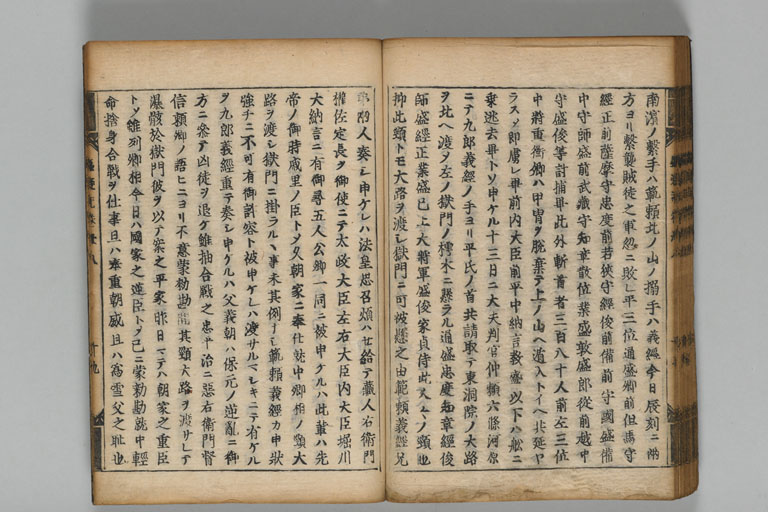 南濱ノ繋手ハ範頼北ノ山ノ搦手ハ義經今日辰刻ニ兩
方ヨリ繋襲賊徒之軍忽ニ敗レ平三位通盛卿前但馬守
經正前薩摩守忠度前若狹守經俊前備前守國盛備
中守師盛前武藏守知章散位業盛敦盛郎從前越中
守盛俊等討捕畢此外斬首者三百八十人前左三位
中將重衡卿ハ甲冑ヲ脱棄テ上ノ山ヘ逃入トイヘ共延ヤ
ラスメ即虜レ畢前内大臣前平中納言教盛以下ハ舩ニ
乘逃去畢トソ申ケル十三日ニ大夫判官仲頼六條河原
ニテ九郎義經ノ手ヨリ平氏ノ首共請取テ東洞院ノ大路
ヲ北ヘ渡ヲ左ノ獄門ノ樗木ニ懸ラル通盛忠度知章經俊
師盛經正業盛已上大將軍盛俊家貞侍此人々ノ頸也
抑此頸トモ大路ヲ渡レ獄門ニ可被懸之由範頼義經兄
弟兩人奏シ申ケレハ法皇思召煩ハセ給テ藏人右衛門
權佐定長ヲ御使ニテ太政大臣左右大臣内大臣堀川
大納言ニ有御尋五人公卿一同ニ被申ケルハ此輩ハ先
帝ノ御時戚里ノ臣トメ久朝家ニ奉仕就中卿相ノ頸大
路ヲ渡レ獄門ニ掛ラルヽ事未其例ナシ範頼義經カ申狀
強チニ不可有御許容ト被申ケレハ渡サルマシキニテ有ケル
ヲ九郎義經重テ奏シ申ケルハ父義朝ハ保元ノ逆亂ニ御
方ニ參テ凶徒ヲ退ケ雖抽合戰之忠平治ニ惡右衛門督
信頼卿ノ語ヒニヨリ不意蒙勅勘其頸大路ヲ渡サレテ
曝骸於獄門彼ヲ以テ案之平家昨日マテハ朝家之重臣
トメ雖列卿相今日ハ國家之違臣トメ已ニ蒙勅勘就中輕
命捨身合戰ヲ仕事且ハ奉重朝威且ハ爲雪父之耻也